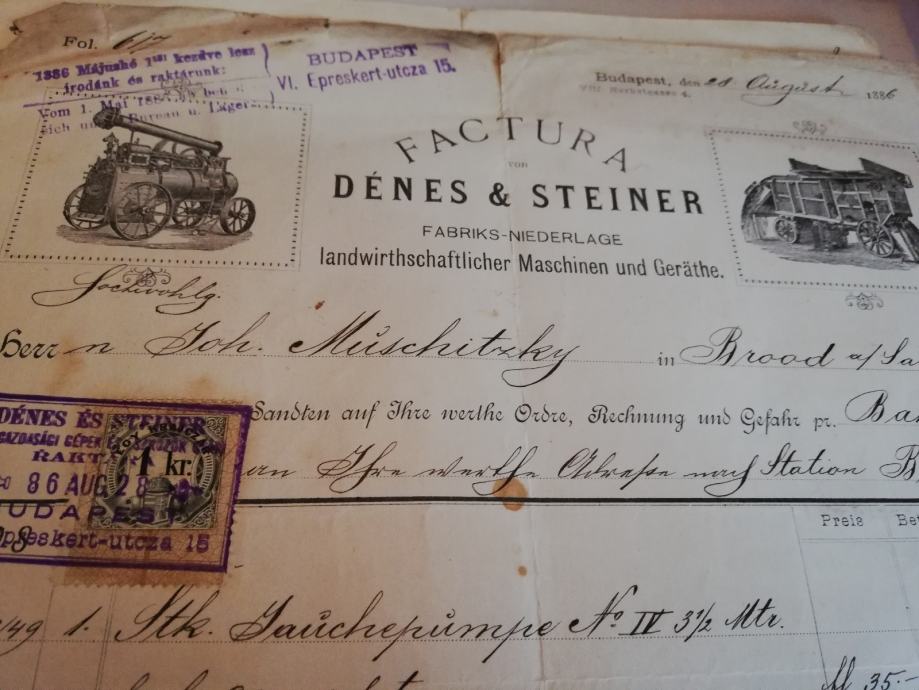 Fol. 617
1886 Májushó 1től kezdve lesz
irodánk és raktárunk:
Vom 1. Mai 1886 an befindet
sich unser Bureau u. Lager:
BUDAPEST
VI. Epreskert-utcza 15.
Budapest, den 28 August 1886
FACTURA
von
DÉNES & STEINER
FABRIKS-NIEDERLAGE
landwirthschaftlicher Maschinen und Geräthe.
Sochwohlg.
Herrn Joh. Muschitzky in Brood a/Sa
Sandten auf Ihre werthe Ordre, Rechnung und Gefahr pr. Ba
an Ihre werthe Adresse nach Station B
DÉNES ÉS STEINER
GAZDASÁGI GÉPEK
RAKT
86 AUG 28
BUDAPEST
Epreskert-utcza 15
1 kr.
Preis Bet
49 1. Stk. Jauchepumpe No IV 3 1/2 Mtr.
fl 35.-